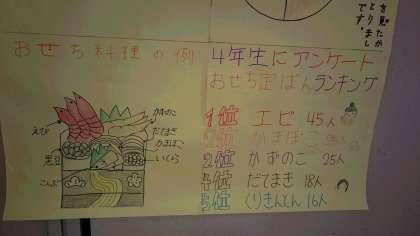 を見たか
とりまし
です。
おせち料理の例
かずのこ
えび
だてまき
かまぼこ
黒豆
いくら
こんぶ
4年生にアンケート
おせち定ばんランキング
1位 エビ 45人
2位 かまぼこ 25人
2位 かずのこ 25人
4位 だてまき 18人
5位 くりきんとん 16人